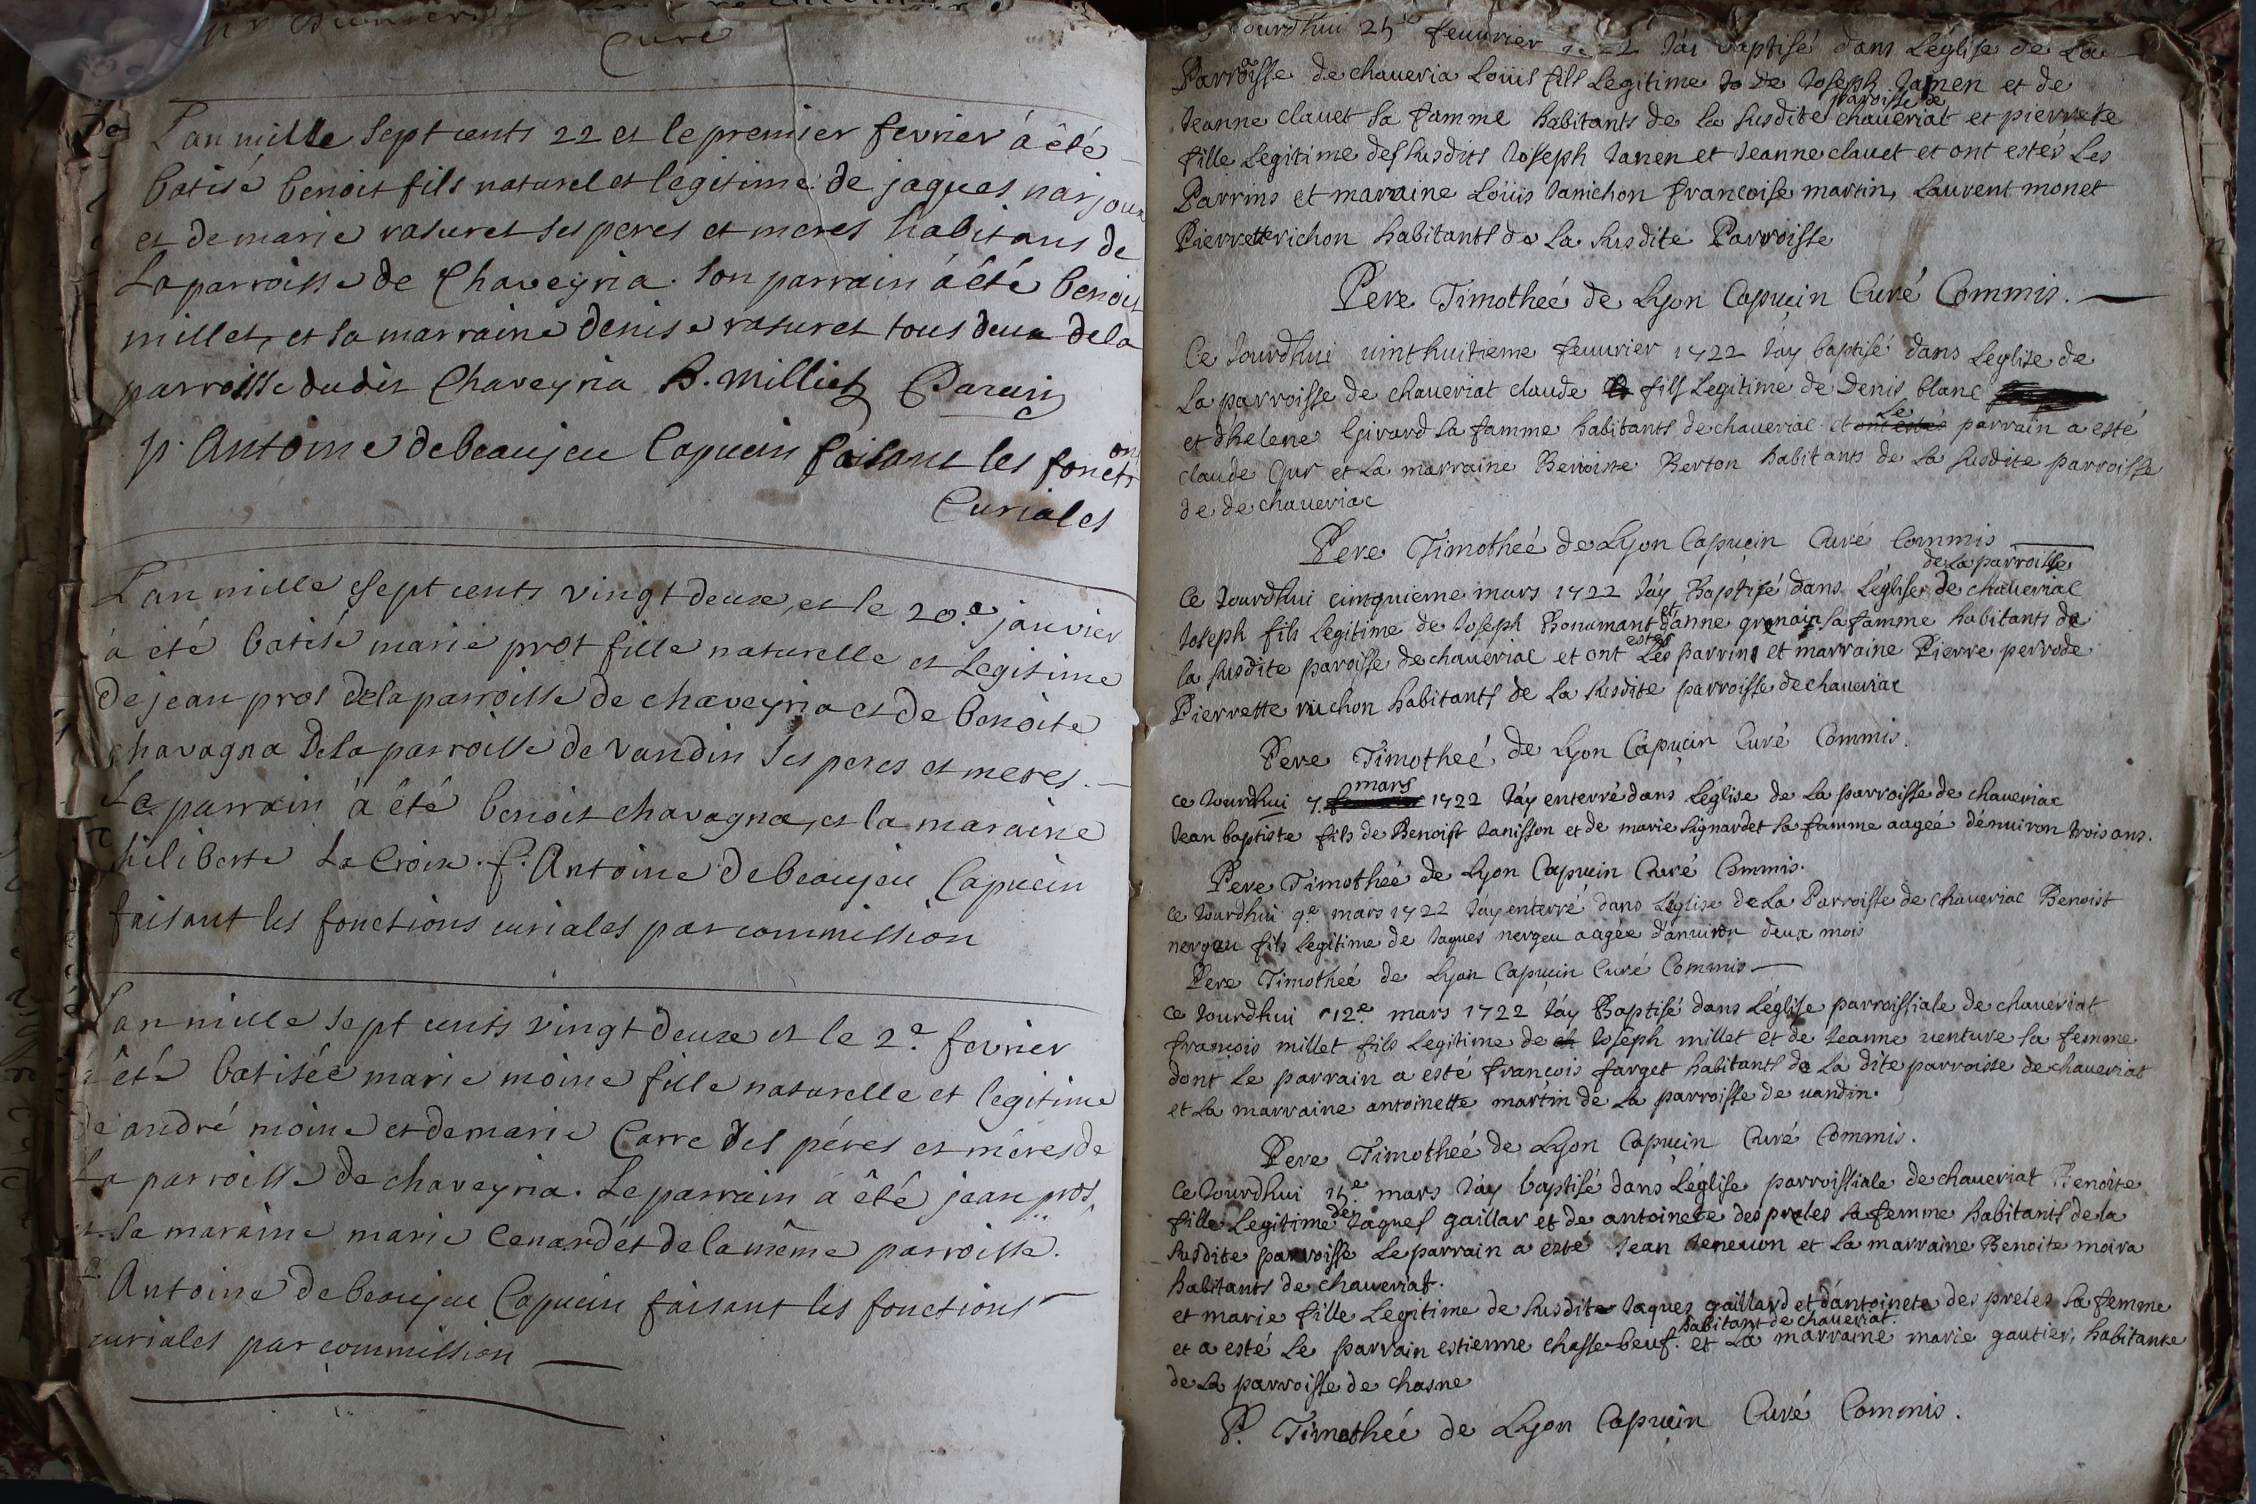 Curé
L'an mille sept cents 22 et le premier fevrier à êté
batisé benoit fils naturel et legitime de jaques narjoux
et de marie rasuret ses peres et meres habitans de
La parroisse de Chaveyria. son parrain à êté benoit
millet, et sa marraine denise rasuret tous deux de la
parroisse dudit Chaveyria B. Milliet Parain
p. Antoine de beaujeu Capucin faisant les fonctions
Curiales
L'an mille sept cents vingt deux, et le 20.e janvier
à été batisé marie prot fille naturelle et legitime
de jean prot de la parroisse de chaveyria et de benoite
chavagna de la parroisse de vandin ses peres et meres.
Le parrain à êté benoit chavagna, et la maraine
philiberte La Croix. f. Antoine de beaujeu Capucin
faisant les fonctions curiales par commission
L'an mille sept cents vingt deux et le 2.e fevrier
à êté batisée marie moine fille naturelle et legitime
de andré moine et de marie Carre ses péres et méres de
La parroisse de chaveyria. Le parrain à êté jean prot,
et sa maraine marie Cenardét de la même parroisse.
p. Antoine de beaujeu Capucin faisant les fonctions
curiales par commission
Ce Jourdhui 25e feuurier 1722 Jái baptisé dans Léglise de La
Parroisse de chaueria Loüis fils Legitime de Joseph Janen et de
Jeanne clauet sa famme habitants de La susdite parroisse de chaueriat et pierrete
fille Legitime des susdits Joseph Janen et Jeanne clauet et ont estés Les
Parrins et marraine Loüis Janichon francoise martin, Laurent monet
Pierrette richon habitants de La susdite Parroisse
Pere Timotheé de Lyon Capucin Curé Commis.
Ce Jourdhui uint huitieme feuurier 1722 Jáy baptisé dans Léglise de
La parroisse de chaueriat claude fils Legitime de Denis blanc
et dhelene Girard sa famme habitants de chaueriac et ont estés Le parrain a esté
claude Gur et La marraine Benoiste Berton habitants de La susdite parroisse
de de chaueriac
Pere Timotheé de Lyon Capucin Curé Commis
Ce Jourdhui cinquieme mars 1722 Jáy Baptisé dans Léglise de La parroisse de chaueriac
Joseph fils Legitime de Joseph Bonamant et danne grenoin sa famme habitants de
la susdite paroisse de chaueriac et ont estés Les parrins et marraine Pierre perrode
Pierrette ruchon habitants de La susdite parroisse de chaueriac
Pere Timotheé de Lyon Capucin Curé Commis.
ce Jourdhui 7. mars 1722 Jáy enterré dans Léglise de La parroisse de chaueriac
Jean baptiste fils de Benoist Janisson et de marie Signardet sa famme aageé dénuiron trois ans.
Pere Timotheé de Lyon Capucin Curé Commis.
ce Jourdhui 9.e mars 1722 Jáy enterré dans Léglise de La Parroisse de chaueriac Benoist
nergeu fils Legitime de Jaques nergeu aagée danuiron deux mois
Pere Timotheé de Lyon Capucin Curé Commis
ce Jourdhui 12.e mars 1722 Jáy Baptisé dans Léglise parroissiale de chaueriat
françois millet fils Legitime de Joseph millet et de Jeanne uenture sa femme
dont Le parrain a esté françois farget habitants de La dite parroisse de chaueriat
et La marraine antoinette martin de La parroisse de uandin.
Pere Timotheé de Lyon Capucin Curé Commis.
Ce Jourdhui 15.e mars Jáy baptisé dans Léglise parroissiale de chaueriat Benoite
fille Legitime de Jaques gaillar et de antoinete des preles sa femme habitants de la
susdite parroisse Le parrain a esté Jean Jeneuon et La marraine Benoite moira
habitants de chaueriat.
et marie fille Legitime de susdite Jaques gaillard et dántoinete des preles sa femme
et a esté Le parrain estienne chasse beuf. habitant de chaueriat. et La marraine marie gautier, habitante
de La parroisse de chasne
P. Timotheé de Lyon Capucin Curé Commis.